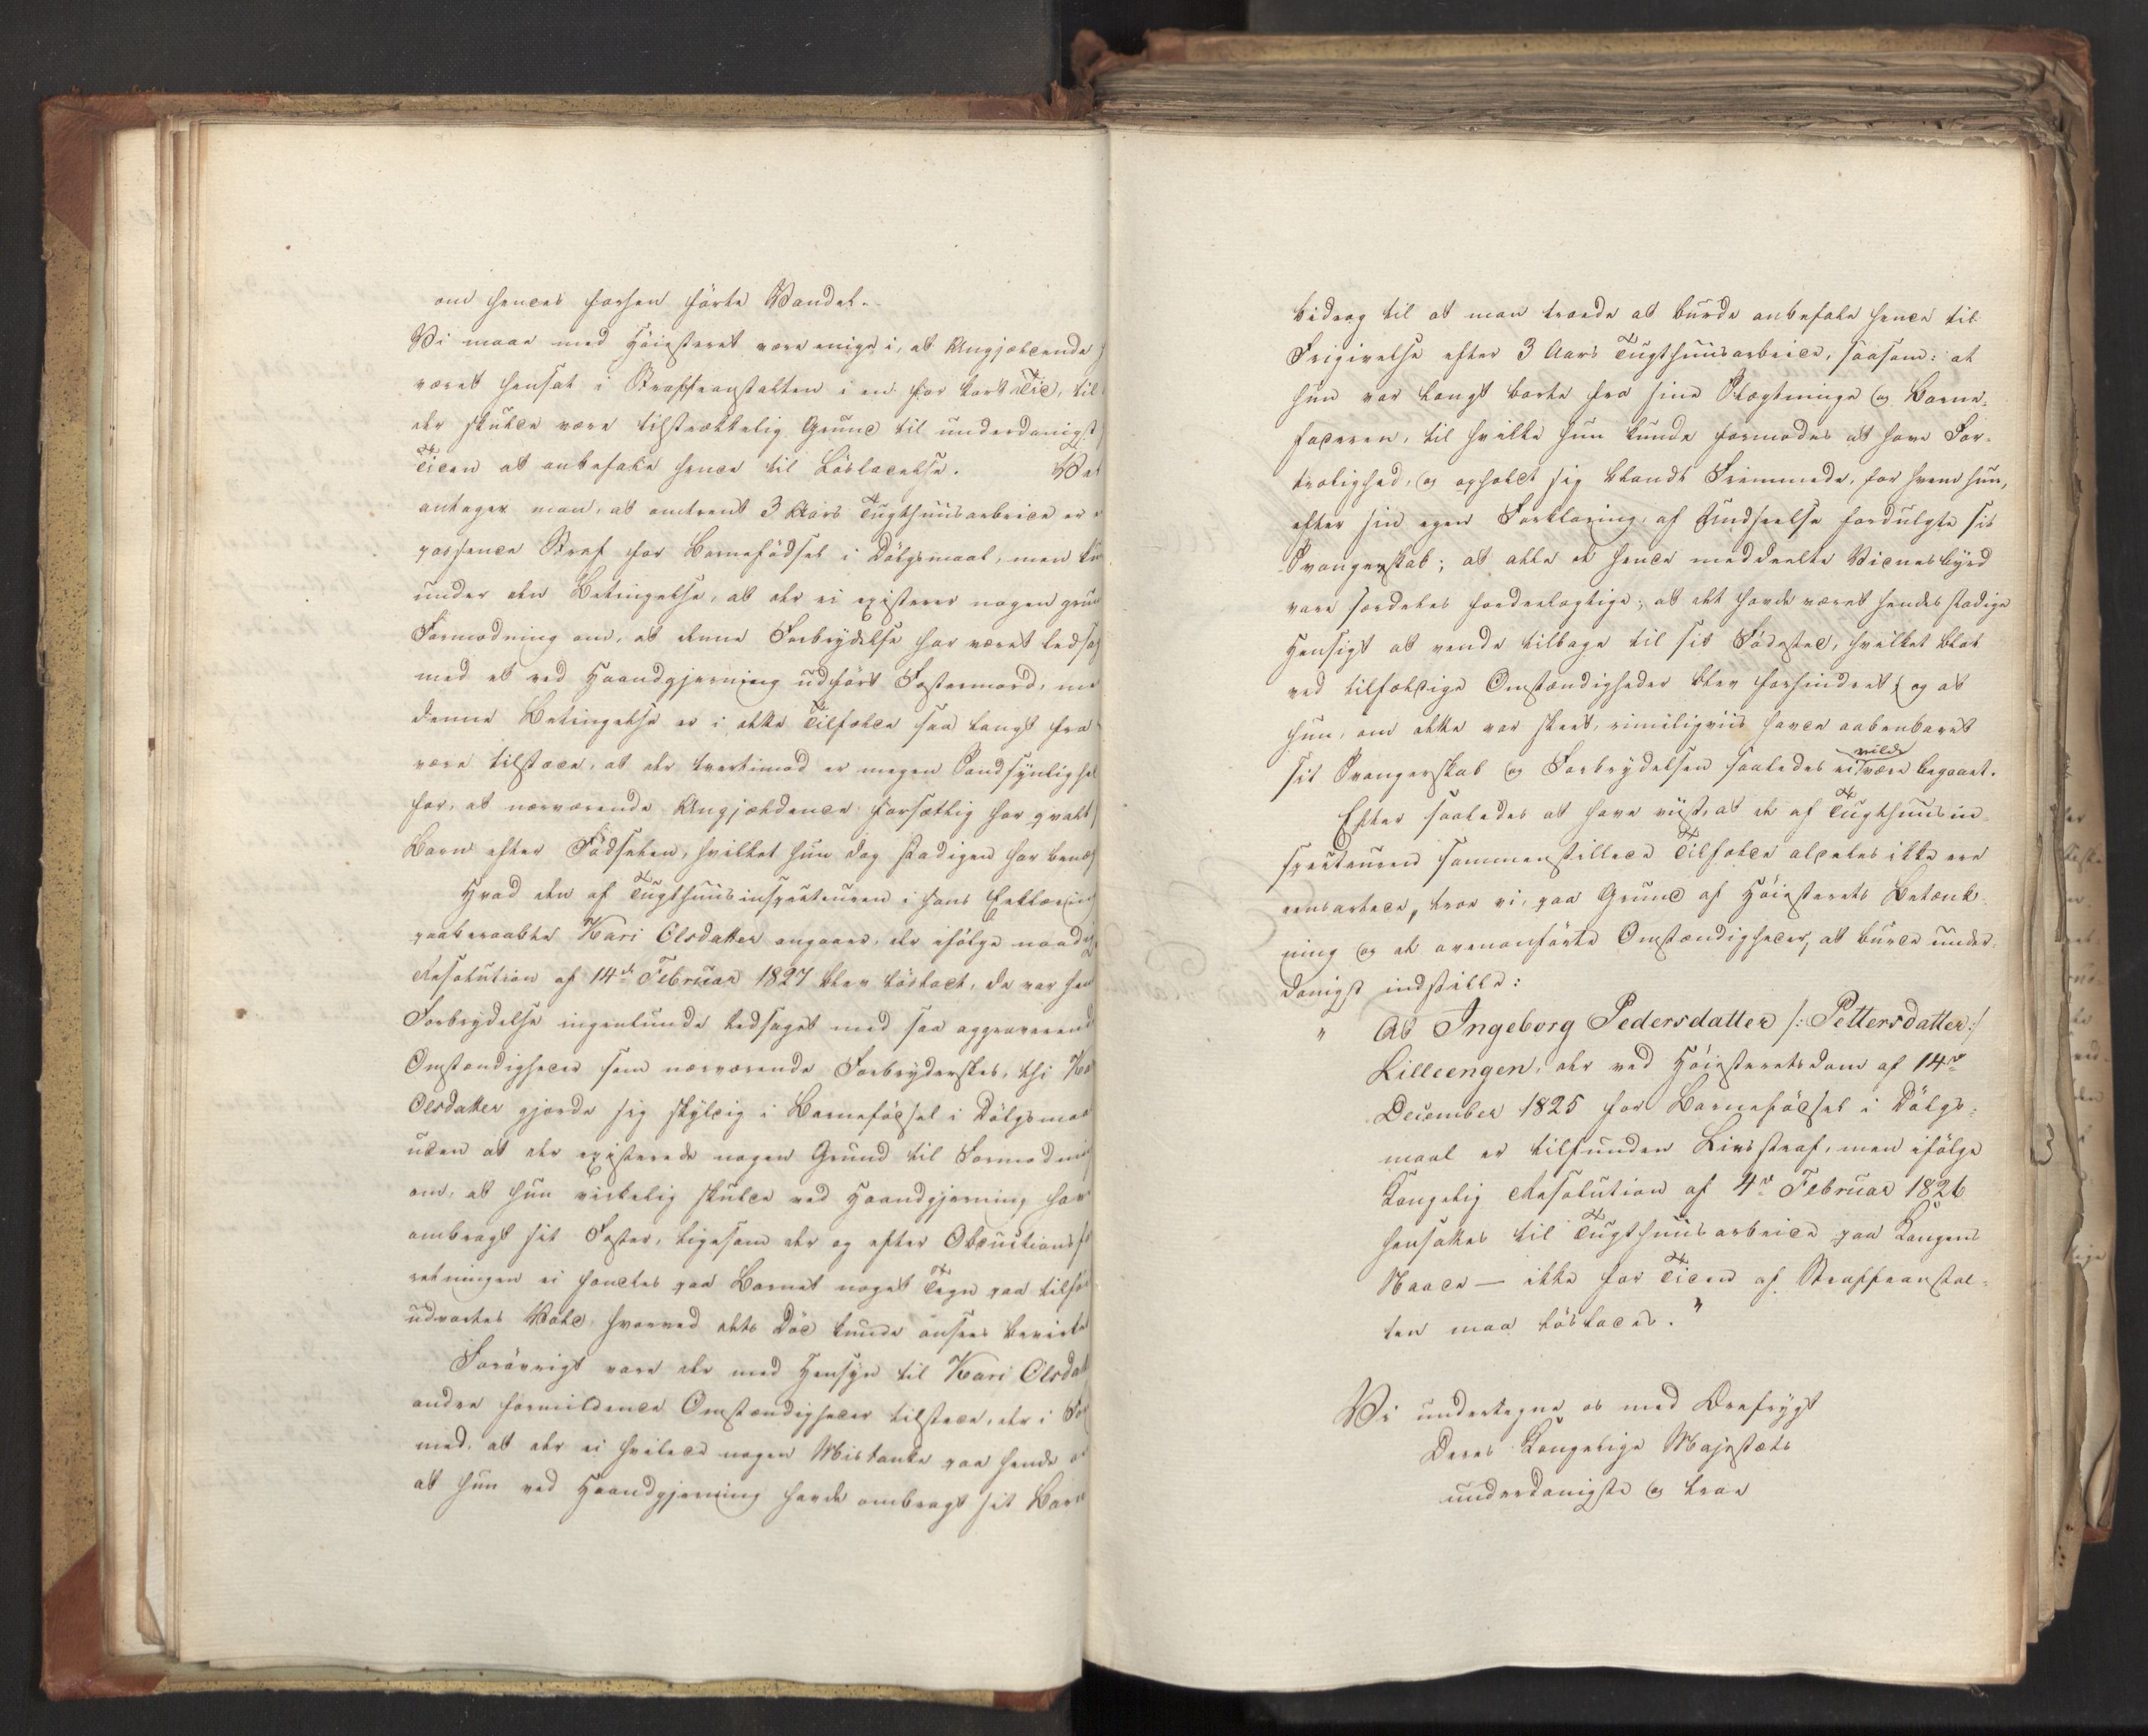 om hendes forhen førte Vandel.
Vi maae med Høiesteret være enige i, at Angjældende
været hensat i Straffeanstalten i en for kort Tid, til
der skulde være tilstrækkelig Grund til underdanigst
Tiden at anbefale hende til Løsladelse. Vel
antager man, at omtrent 3 Aars Tugthuusarbeide er
passende Straf for Barnefødsel i Dølgsmaal, men kun
under den Betingelse, at der ei existerer nogen
Formodning om, at denne Forbrydelse har været
med et ved Haandgjerning udført Fostermord, men
denne Betingelse er i dette Tilfælde saa langt fra
være tilstæde, at der tvertimod er megen Sandsynlighed
for, at nærværende Angjældende forsætlig har qvalt
Barn efter Fødselen, hvilket hun dog stadigen har
Hvad den af Tugthuusinspecteuren i hans Erklæring
paaberaabte Kari Olsdatter angaaer, der ifølge naadig
Resolution af 14de Februar 1827 blev løsladt, da var
Forbrydelse ingenlunde ledsaget med saa aggraverende
Omstændigheder som nærværende Forbryderskes, thi
Olsdatter gjorde sig skyldig i Barnefødsel i Dølgsmaal
uden at der existerede nogen Grund til Formodning
om, at hun virkelig skulde ved Haandgjerning have
ombragt sit Foster, ligesom der og efter
retningen ei fandtes paa Barnet noget Tegn paa
udvortes Vold, hvorved dets Død kunde ansees bevirket
Forøvrigt vare der med Hensyn til Kari Olsdatter
andre formildende Omstændigheder tilstæde, der i
med, at der ei hvilede nogen Mistanke paa hende
at hun ved Haandgjerning havde ombragt sit Barn
bidrog til at man troede at burde anbefale hende til
Frigivelse efter 3 Aars Tugthuusarbeide, saasom: at
hun var langt borte fra sine Slægtninge og Barne-
faderen, til hvilke hun kunde formodes at have For-
trolighed, og opholdt sig blandt Fremmede, for hvem hun,
efter sin egen Forklaring, af Undseelse fordulgte sit
Svangerskab; at alle de hende meddeelte Vidnesbyrd
vare særdeles fordeelagtige; at det havde været hendes stadige
Hensigt at vende tilbage til sit Fødested, hvilket blot
ved tilfældige Omstændigheder blev forhindret; og at
hun, om dette var skeet, rimeligviis havde aabenbaret
sit Svangerskab og Forbrydelsen saaledes ei vilde være begaaet.
Efter saaledes at have viist, at de af Tugthuusin-
specteuren sammenstillede Tilfælde aldeles ikke ere
eensartede, troe vi, paa Grund af Høiesterets Betænk-
ning og de ovenanførte Omstændigheder, at burde under-
danigst indstille:
" At Ingeborg Pedersdatter /: Pettersdatter :/
Lilleengen, der ved Høiesteretsdom af 14de
December 1825 for Barnefødsel i Dølgs-
maal er tilfunden Livsstraf, men ifølge
Kongelig Resolution af 4de Februar 1826
hensattes til Tugthuusarbeide paa Kongens
Naade — ikke for Tiden af Straffeanstal-
ten maa løslades."
Vi undertegne os med Ærefrygt
Deres Kongelige Majestæts
underdanigste og troe